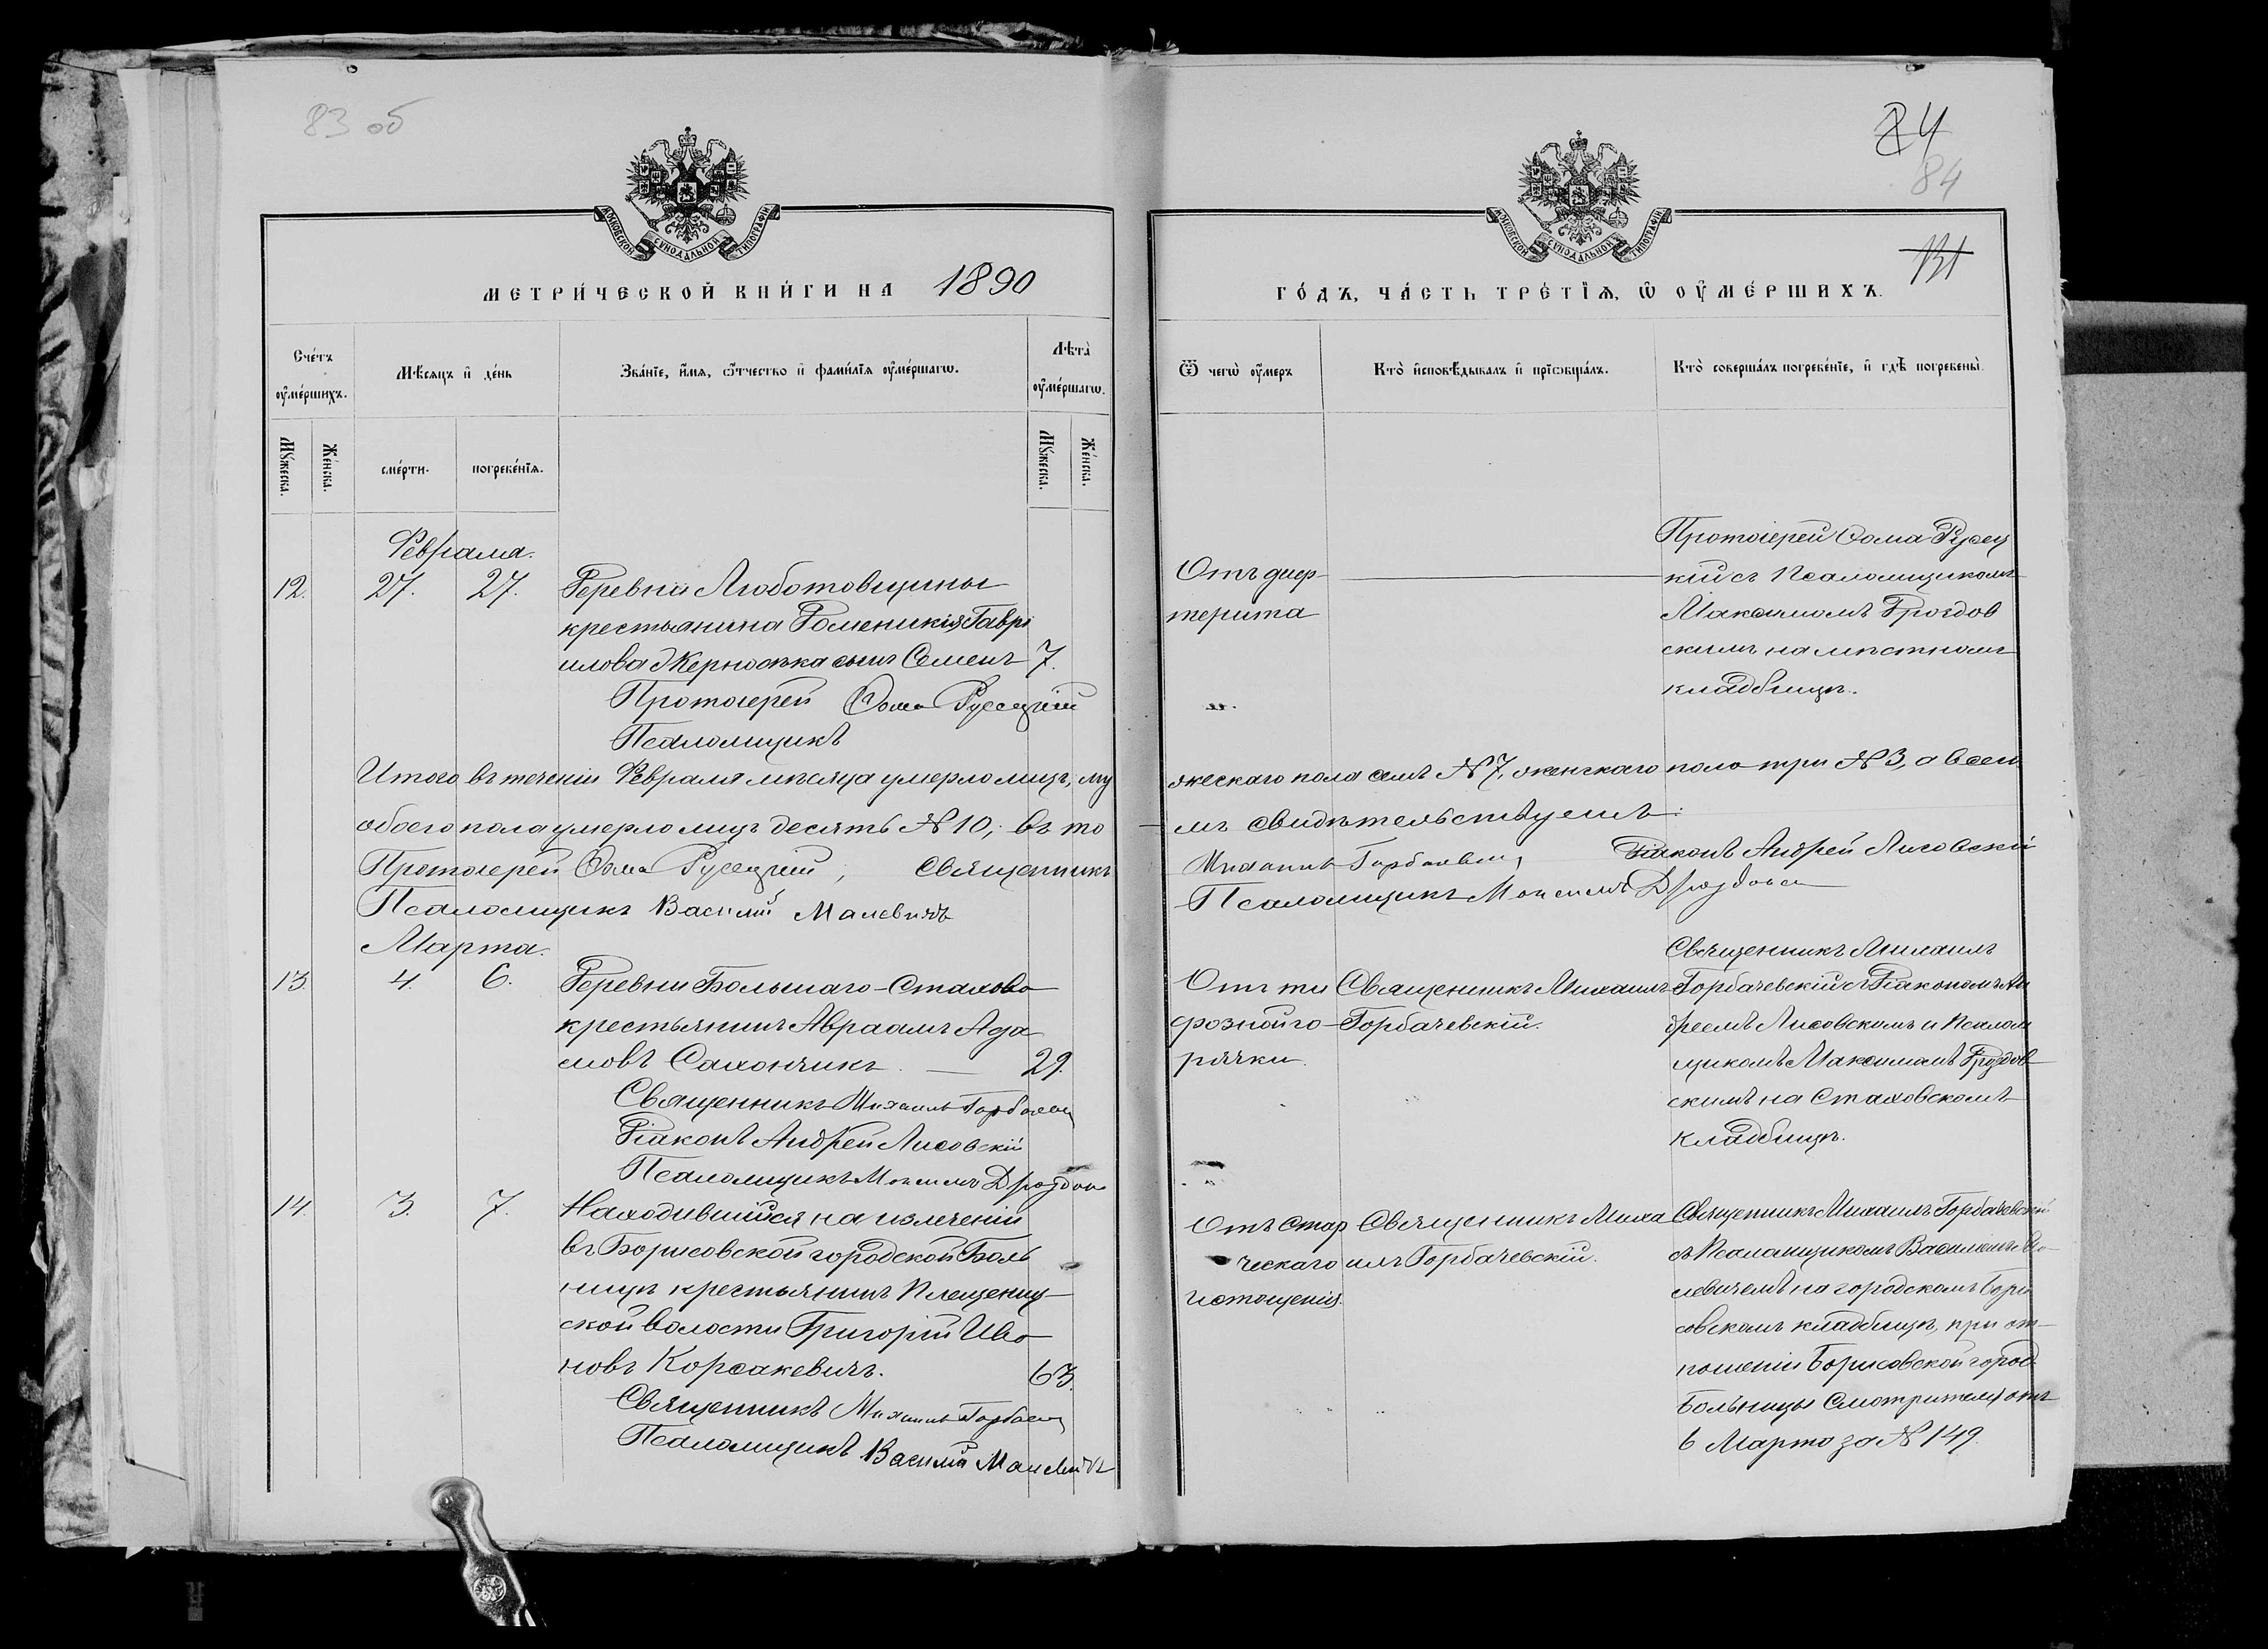 83 об
84
84
131
МОСКОВСКОЙ СУНОДАЛЬНОЙ ТИПОГРАФІИ
МОСКОВСКОЙ СУНОДАЛЬНОЙ ТИПОГРАФІИ
МЕТРИ́ЧЕСКОЙ КНИ́ГИ НА 1890
ГО́ДЪ, ЧА́СТЬ ТРЕ́ТЇѦ, Ѡ ОУ҆МЕ́РШИХЪ.
Сче́тъ оу҆ме́ршихъ.
Мꙋ́жеска.
Же́нска.
Мѣ́сяцъ и҆ де́нь
сме́рти.
погребе́нїѧ.
Зва́нїе, и҆́мѧ, ѻ҆́тчество и҆ фами́лїѧ оу҆ме́ршагѡ.
Лѣ́та оу҆ме́ршагѡ.
Мꙋ́жеска.
Же́нска.
Ѿ чегѡ̀ оу҆́меръ
Кто̀ и҆сповѣ́дывалъ и҆ прїѻбща́лъ.
Кто̀ соверша́лъ погребе́нїе, и҆ гдѣ̀ погребены̀.
Февраля.
12. 27. 27. Деревни Люботовщины
крестьянина Доменикія Гаврі
илова Жерносѣка сынъ Семенъ 7.
Протоіерей Ѳома Русецкій
Псаломщикъ
Отъ диф-
терита
Протоіерей Ѳома Русец
кій съ Псаломщикомъ
Максимомъ Дроздов
скимъ на мѣстномъ
кладбищѣ.
Итого въ теченіи Февраля мѣсяца умерло лицъ, му
жескаго пола семь № 7, женскаго пола три № 3, а всего
обоего пола умерло лицъ десять № 10; въ то
мъ свидѣтельствуемъ:
Протоіерей Ѳома Русецкій, Священникъ
Михаилъ Горбачевскій Діаконъ Андрей Лисовскій
Псаломщикъ Василій Малевичъ
Псаломщикъ Максимъ Дроздовск
Марта.
13. 4. 6. Деревни Большаго-Стахова
крестьянинъ Авраамъ Ада
мовъ Сахончикъ. — 29.
Священникъ Михаилъ Горбачев
Діаконъ Андрей Лисовскій
Псаломщикъ Максимъ Дроздов
Отъ ти
фозной го-
рячки.
Священникъ Михаилъ
Горбачевскій.
Священникъ Михаилъ
Горбачевскій съ Діакономъ Ан
дреемъ Лисовскомъ и Псалом
щикомъ Максимомъ Дроздов
скимъ на Стаховскомъ
кладбищѣ.
14. 3. 7. Находившійся на излеченіи
въ Борисовской городской Боль
ницѣ крестьянинъ Плещениц-
ской волости Григорій Ива
новъ Корсакевичъ. 63.
Священникъ Михаилъ Горбачев
Псаломщикъ Василій Малевичъ
Отъ стар
ческаго
истощенія.
Священникъ Миха
илъ Горбачевскій.
Священникъ Михаилъ Горбачевскій
съ Псаломщикомъ Василіемъ Ма-
левичемъ на городскомъ Бори
совскомъ кладбищѣ, при от-
ношеніи Борисовской город.
Больницы Смотрителя отъ
6 Марта за № 149.